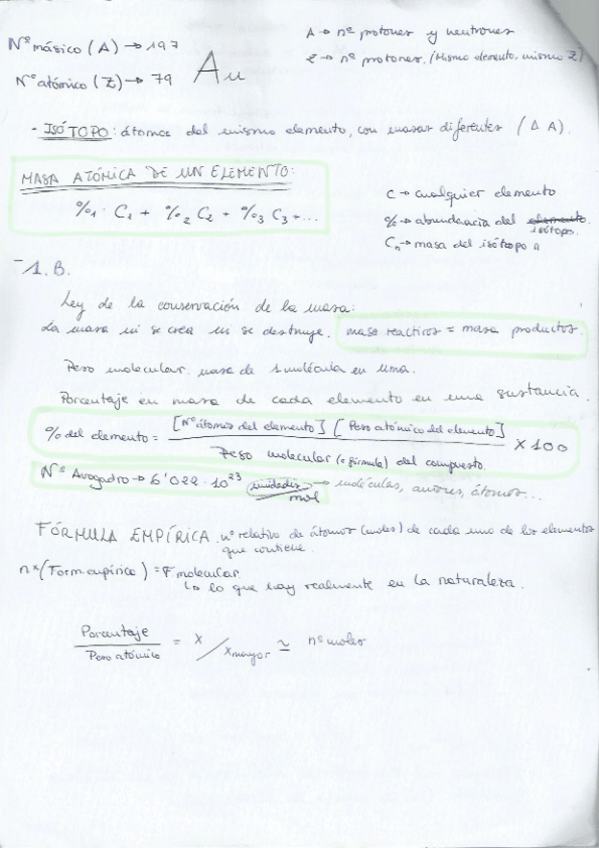 Nº másico (A) → 197
Nº atómico (Z) → 79
Au
A → nº protones y neutrones
Z → nº protones. (Mismo elemento, mismo Z)
- ISÓTOPO: átomos del mismo elemento, con masas diferentes (Δ A).
MASA ATÓMICA DE UN ELEMENTO:
%₁ · C₁ + %₂ C₂ + %₃ C₃ + ...
C → cualquier elemento
% → abundancia del elemento isótopo.
Cₙ → masa del isótopo n
- 1.B.
Ley de la conservación de la masa:
La masa ni se crea ni se destruye. masa reactivos = masa productos.
Peso molecular. masa de 1 molécula en uma.
Porcentaje en masa de cada elemento en una sustancia.
% del elemento = [Nº átomos del elemento] [Peso atómico del elemento] / Peso molecular (o fórmula) del compuesto. × 100
Nº Avogadro → 6'022 · 10²³ unidades/mol → moléculas, átomos...
FÓRMULA EMPÍRICA. nº relativo de átomos (moles) de cada uno de los elementos
que contiene.
n × (Form empírica) = F molecular.
↳ lo que hay realmente en la naturaleza.
Porcentaje / Peso atómico = x / x mayor ≃ nº moles